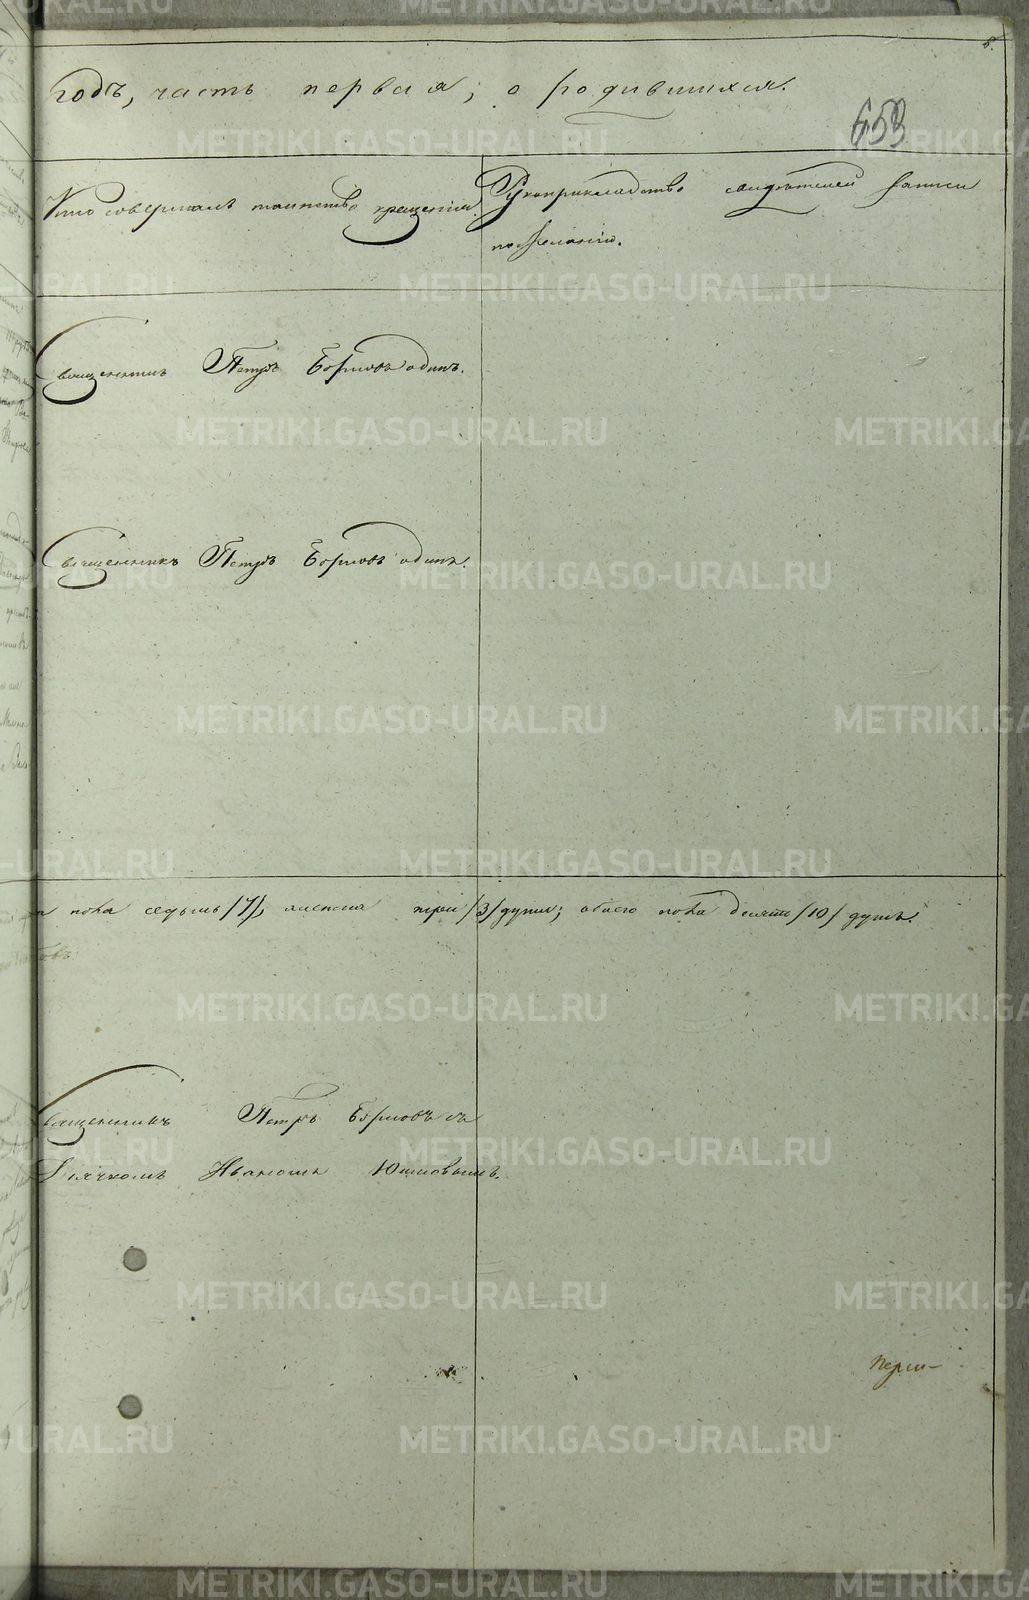 8.
годъ, часть первая; о родившихся.
653
Кто совершалъ таинство крещенія.
Рукоприкладство свидѣтелей записи
по желанію.
Священникъ Петръ Борисовъ одинъ.
Священникъ Петръ Борисовъ одинъ.
пола седьмь /7/, женска три /3/ души; обоего пола десять /10/ душъ.
Священникъ Петръ Борисовъ съ
Дьячкомъ Иваномъ Юшковымъ.
METRIKI.GASO-URAL.RU